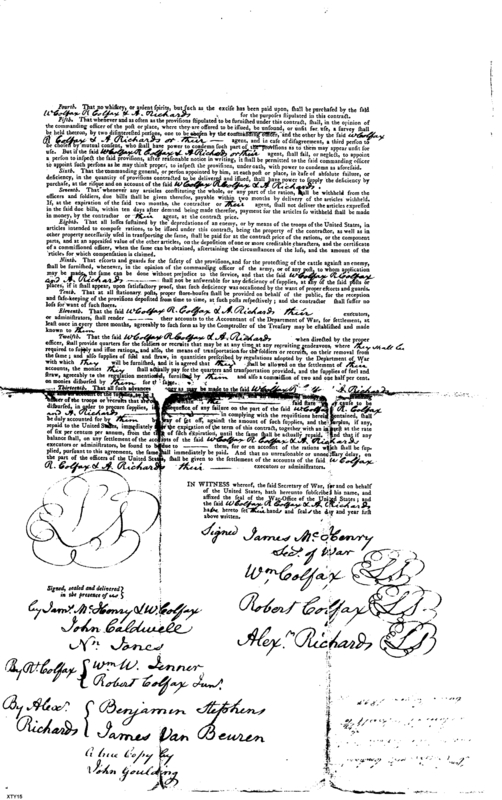 Fourth. That no whiskey, or ardent spirits, but such as the excise has been paid upon, shall be purchased by the said
W Colfax R Colfax & A. Richards for the purposes stipulated in this contract.
Fifth. That whenever and as often as the provisions stipulated to be furnished under this contract, shall, in the opinion of
the commanding officer of the post or place, where they are offered to be issued, be unsound, or unfit for use, a survey shall
be held thereon, by two disinterested persons, one to be chosen by the commanding officer, and the other by the said W Colfax
R Colfax & A Richards or their agent, and in case of disagreement, a third person to
be chosen by mutual consent, who shall have power to condemn such part of the provisions as to them may appear unfit for
use. But if the said W Colfax R Colfax & A Richards or their agent, shall fail, or neglect, to appoint
a person to inspect the said provisions, after reasonable notice in writing, it shall be permitted to the said commanding officer
to appoint such persons as he may think proper, to inspect the provisions, under oath, with power to condemn as aforesaid.
Sixth. That the commanding general, or person appointed by him, at each post or place, in case of absolute failure, or
deficiency, in the quantity of provisions contracted to be delivered and issued, shall have power to supply the deficiency by
purchase, at the risque and on account of the said W Colfax R Colfax & A Richards.
Seventh. That whenever any articles constituting the whole, or any part of the ration, shall be withheld from the
officers and soldiers, due bills shall be given therefor, payable within two months by delivery of the articles withheld.
If, at the expiration of the said two months, the contractor or their agent, shall not deliver the articles expressed
in the said due bills, within ten days after demand being made therefor, payment for the articles so withheld shall be made
in money, by the contractor or their agent, at the contract price.
Eighth. That all losses sustained by the depredations of an enemy, or by means of the troops of the United States, in
articles intended to compose rations, to be issued under this contract, being the property of the contractor, as well as in
other property necessarily used in transporting the same, shall be paid for at the contract price of the rations, or the component
parts, and at an appraised value of the other articles, on the deposition of one or more creditable characters, and the certificate
of a commissioned officer, when the same can be obtained, ascertaining the circumstances of the loss, and the amount of the
articles for which compensation is claimed.
Ninth. That escorts and guards for the safety of the provisions, and for the protecting of the cattle against an enemy,
shall be furnished, whenever, in the opinion of the commanding officer of the army, or of any post, to whom application
may be made, the same can be done without prejudice to the service, and that the said W Colfax R Colfax
and A. Richards shall not be answerable for any deficiency of supplies, at any of the said posts or
places, if it shall appear, upon satisfactory proof, that such deficiency was occasioned by the want of proper escorts and guards.
Tenth. That at all stationary posts, proper store-houses shall be provided on behalf of the public, for the reception
and safe-keeping of the provisions deposited from time to time, at such posts respectively; and the contractor shall suffer no
loss for want of such stores.
Eleventh. That the said W Colfax R. Colfax & A. Richards their executors,
or administrators, shall render their accounts to the Accountant of the Department of War, for settlement, at
least once in every three months, agreeably to such form as by the Comptroller of the Treasury may be established and made
known to them
Twelfth. That the said W Colfax R Colfax & A. Richards when directed by the proper
officer, shall provide quarters for the soldiers or recruits that may be at any time, at any recruiting rendezvous, where they shall be
required to supply and issue rations, and also, the means of transportation for the soldiers or recruits, on their removal from
the same; and also supplies of fuel and straw, in quantities prescribed by regulations adopted by the Department of War
with which they will be furnished, and it is agreed that they shall be allowed on the settlement of their
accounts, the monies they shall actually pay for the quarters and transportation provided, and the supplies of fuel and
straw, agreeably to the regulation mentioned, furnished by them and also a commission of two and one half per cent.
on monies disbursed by them for
Thirteenth. That all such advances may be made to the said
disbursed, in order to procure supplies, consequence of any failure on the part of the said W Colfax R. Colfax
and A. Richards in complying with the requisitions herein contained, shall
be duly accounted for by them by set off, against the amount of such supplies, and the surplus, if any,
repaid to the United States, immediately after the expiration of the term of this contract, together with an interest at the rate
of six per centum per annum, from the time of such expiration, until the same shall be actually repaid. And that if any
balance shall, on any settlement of the accounts of the said W Colfax R. Colfax & A. Richards
executors or administrators, be found to be due to them, for or on account of the rations which shall be supplied,
pursuant to this agreement, the same shall immediately be paid. And that no unreasonable or unnecessary delay, on
the part of the officers of the United States, shall be given to the settlement of the accounts of the said W Colfax
R. Colfax & A. Richards their executors or administrators.
IN WITNESS whereof, the said Secretary of War, for and on behalf
of the United States, hath hereunto subscribed his name, and
affixed the seal of the War-Office of the United States; and
the said W Colfax R. Colfax & A. Richards
have hereto set their hands and seals the day and year first
above written.
Signed James McHenry
Secy. of War
Wm Colfax
Robert Colfax
Alexr. Richards
LS
LS
LS
LS
Signed, sealed and delivered
in the presence of us
by Jams. McHenry & W. Colfax
John Caldwell
Nn Jones
By Rt. Colfax
Wm W. Jenner
Robert Colfax Junr.
By Alexr.
Richards
Benjamin Stephens
James Van Beuren
a true Copy by
John Goulding
XTY16